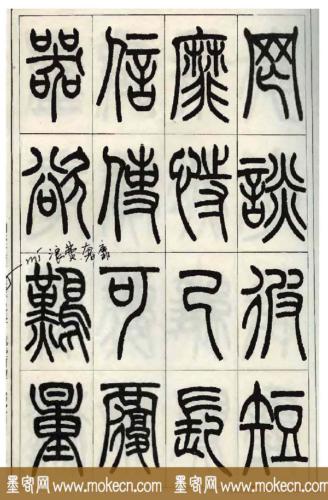 罔談彼短
靡恃己長
信使可覆
器欲難量
mí 浪费 奢靡
墨客网 www.mokecn.com 墨客网 www.mokecn.com